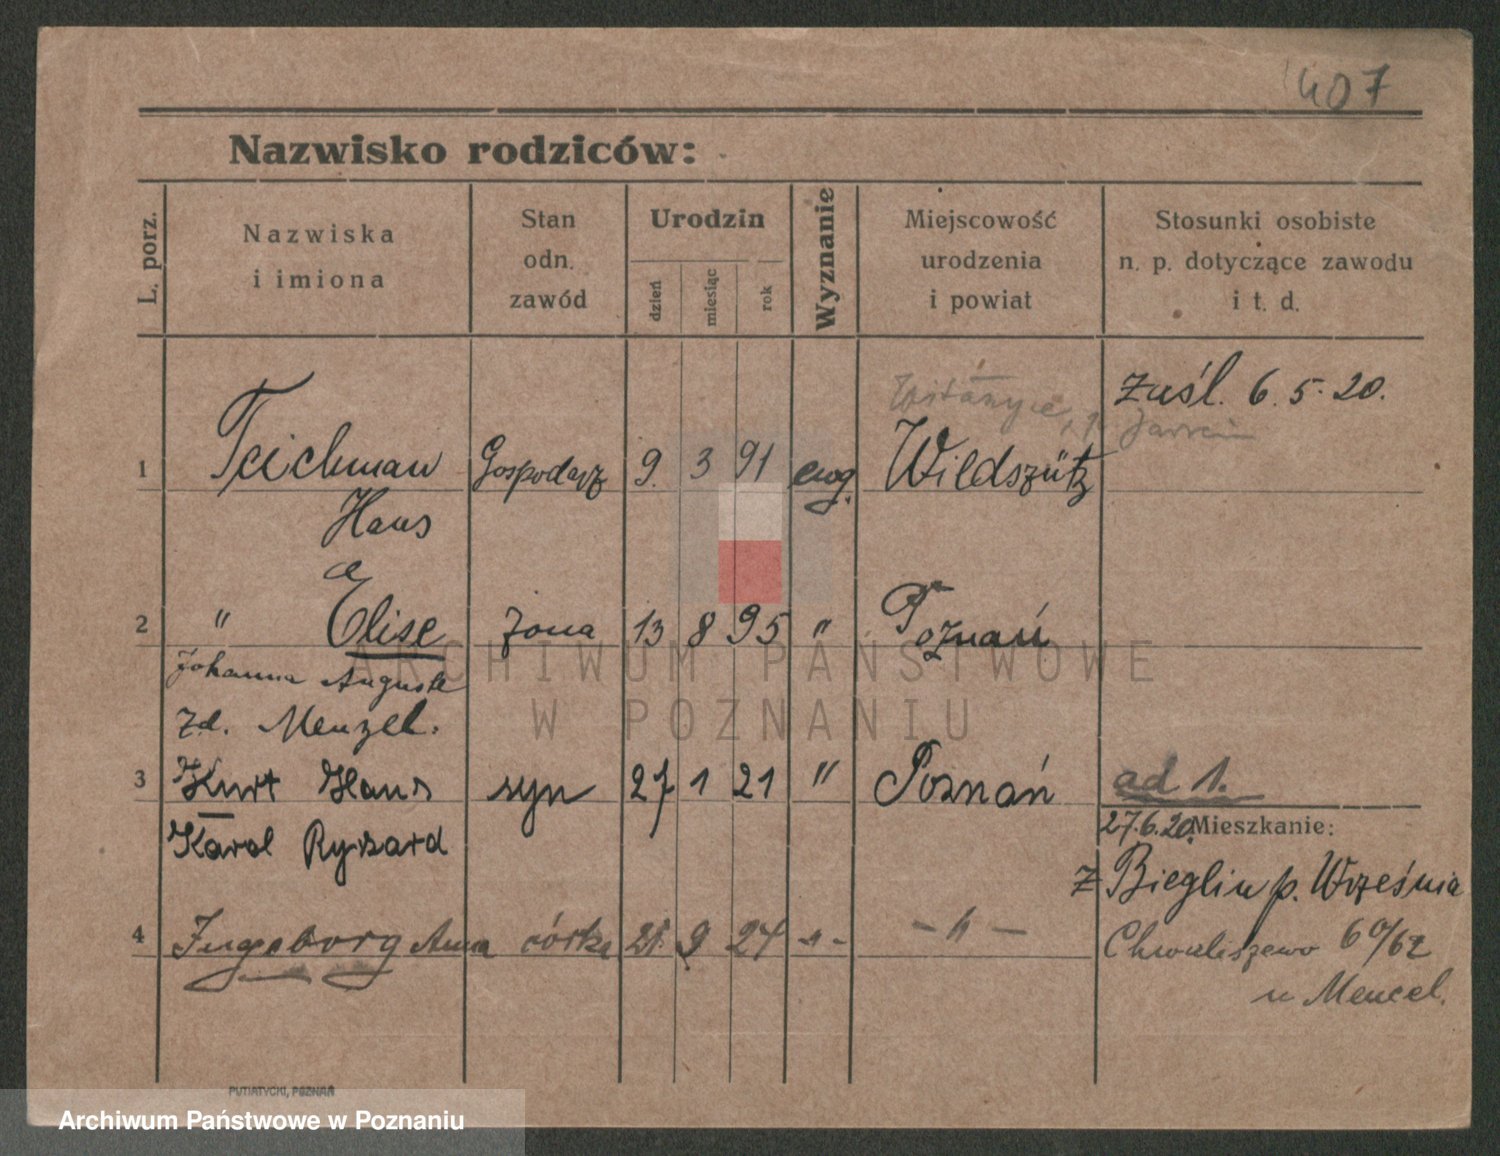 407
Nazwisko rodziców:
L. porz.
Nazwiska
i imiona
Stan
odn.
zawód
Urodzin
dzień
miesiąc
rok
Wyznanie
Miejscowość
urodzenia
i powiat
Stosunki osobiste
n. p. dotyczące zawodu
i t. d.
zaśl. 6.5.20.
1 Teichman Gospodarz 9. 3 91 ewg. Wildszütz
Hans
2 " Elise żona 13 8 95 " Poznań
Johanna Auguste
zd. Menzel.
3 Kurt Hans syn 27 1 21 " Poznań
ad 1.
Karol Ryszard
27.6.20. Mieszkanie:
z Bieglin p. Września
4 Ingeborg Anna córka 21. 9 24 -"- -"-
Chwaliszewo 60/62
u Mencel.
PUTIATYCKI, POZNAŃ
ARCHIWUM PAŃSTWOWE
W POZNANIU
Archiwum Państwowe w Poznaniu